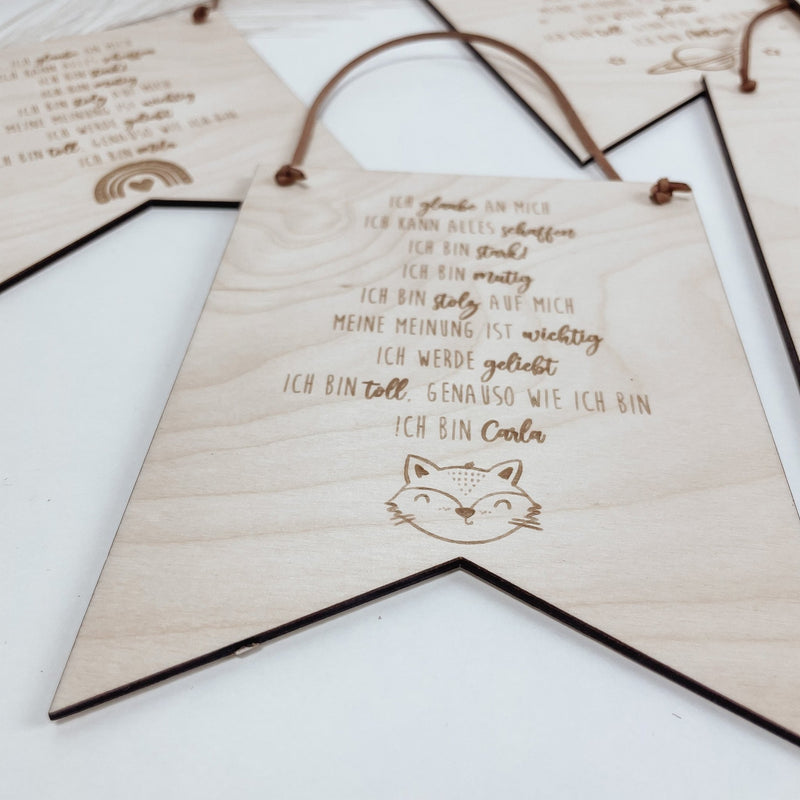 ICH glaube AN MICH
ICH KANN ALLES schaffen
ICH BIN stark!
ICH BIN mutig
ICH BIN stolz AUF MICH
MEINE MEINUNG IST wichtig
ICH WERDE geliebt
ICH BIN toll, GENAUSO WIE ICH BIN
ICH BIN Carla
ICH glaube AN MICH
ICH KANN ALLES schaffen
ICH BIN stark!
ICH BIN mutig
ICH BIN stolz AUF MICH
MEINE MEINUNG IST wichtig
ICH WERDE geliebt
ICH BIN toll, GENAUSO WIE ICH BIN
ICH BIN